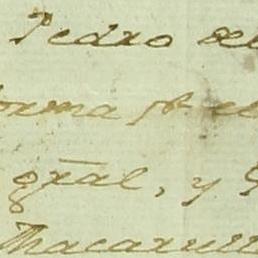 Pedro del
orma pr. el
gral, y
Macaru